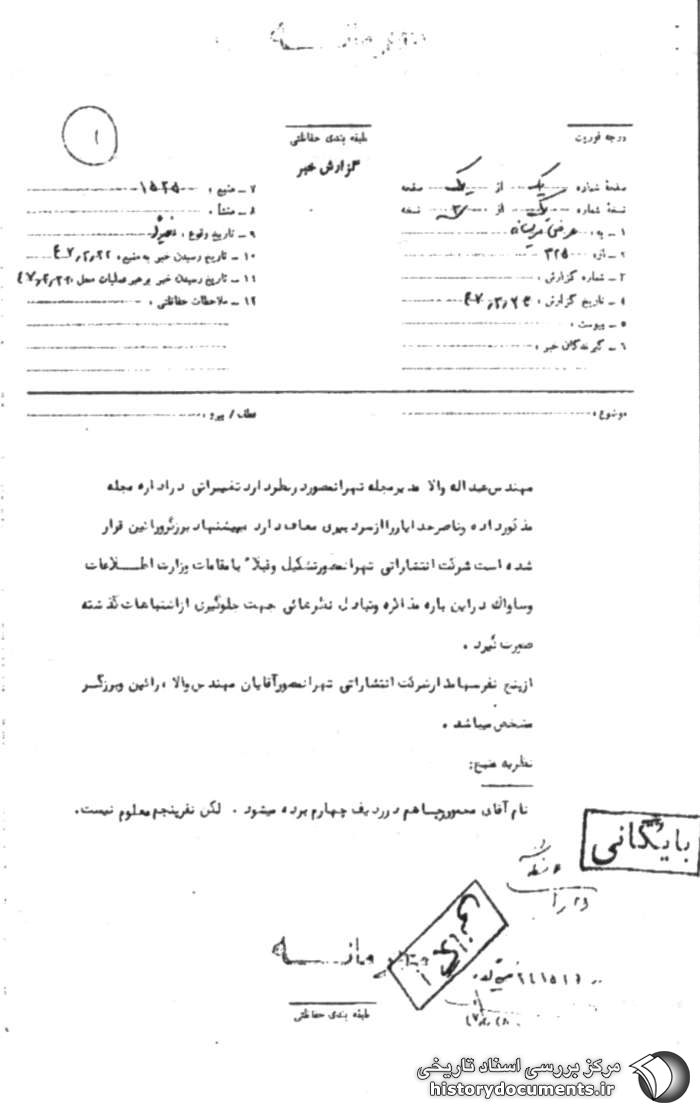 محرمانه
درجه فوریت
طبقه بندی حفاظتی
گزارش خبر
۱
صفحهٔ شماره یک از یک صفحه
نسخهٔ شماره یک از ۳ نسخه
۱ ـ به:
۲ ـ از: ۳۲۵
۳ ـ شماره گزارش:
۴ ـ تاریخ گزارش: ۴۷٫۳٫۲۳
۵ ـ پیوست:
۶ ـ گیرندگان خبر:
۷ ـ منبع: ۱۵۲۵
۸ ـ منشأ:
۹ ـ تاریخ وقوع:
۱۰ ـ تاریخ رسیدن خبر به منبع: ۴۷٫۳٫۲۲
۱۱ ـ تاریخ رسیدن خبر برهبر عملیات محل:
۱۲ ـ ملاحظات حفاظتی:
موضوع:
عطف / پیرو:
مهندس عبداله والا مدیر مجله تهرانمصور در نظر دارد تغییراتی در اداره مجله
مذکور داده وناصر خدایار را از سردبیری معاف دارد به پیشنهاد برزگر و رائین قرار
شده است شرکت انتشاراتی تهرانمصور تشکیل وقبلاً با مقامات وزارت اطــلاعات
وساواک در این باره مذاکره وتبادل نظرهائی جهت جلوگیری از اشتباهات گذشته
صورت گیرد .
از پنج نفر سهامدار شرکت انتشاراتی تهرانمصور آقایان مهندس والا ، رائین وبرزگــر
مشخص میباشد .
نظریه منبع:
نام آقای هم در ردیف چهارم برده میشود . لکن نفر پنجم معلوم نیست.
بایگانی
محرمانــه
طبقه بندی حفاظتی
مرکز بررسی اسناد تاریخی
historydocuments.ir